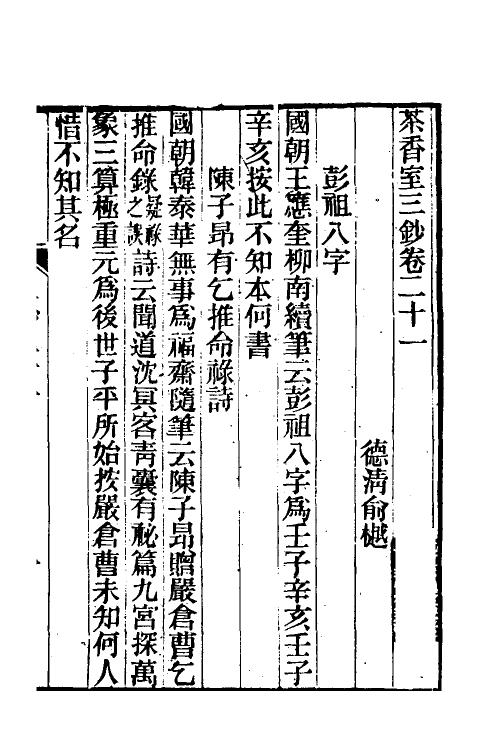 茶香室三鈔卷二十一
德淸俞樾
彭祖八字
國朝王應奎柳南續筆云彭祖八字爲壬子辛亥壬子
辛亥按此不知本何書
陳子昂有乞推命祿詩
國朝韓泰華無事爲福齋隨筆云陳子昂贈嚴倉曹乞
推命錄疑祿之誤詩云聞道沈冥客靑囊有祕篇九宮探萬
象三算極重元爲後世子平所始按嚴倉曹未知何人
惜不知其名